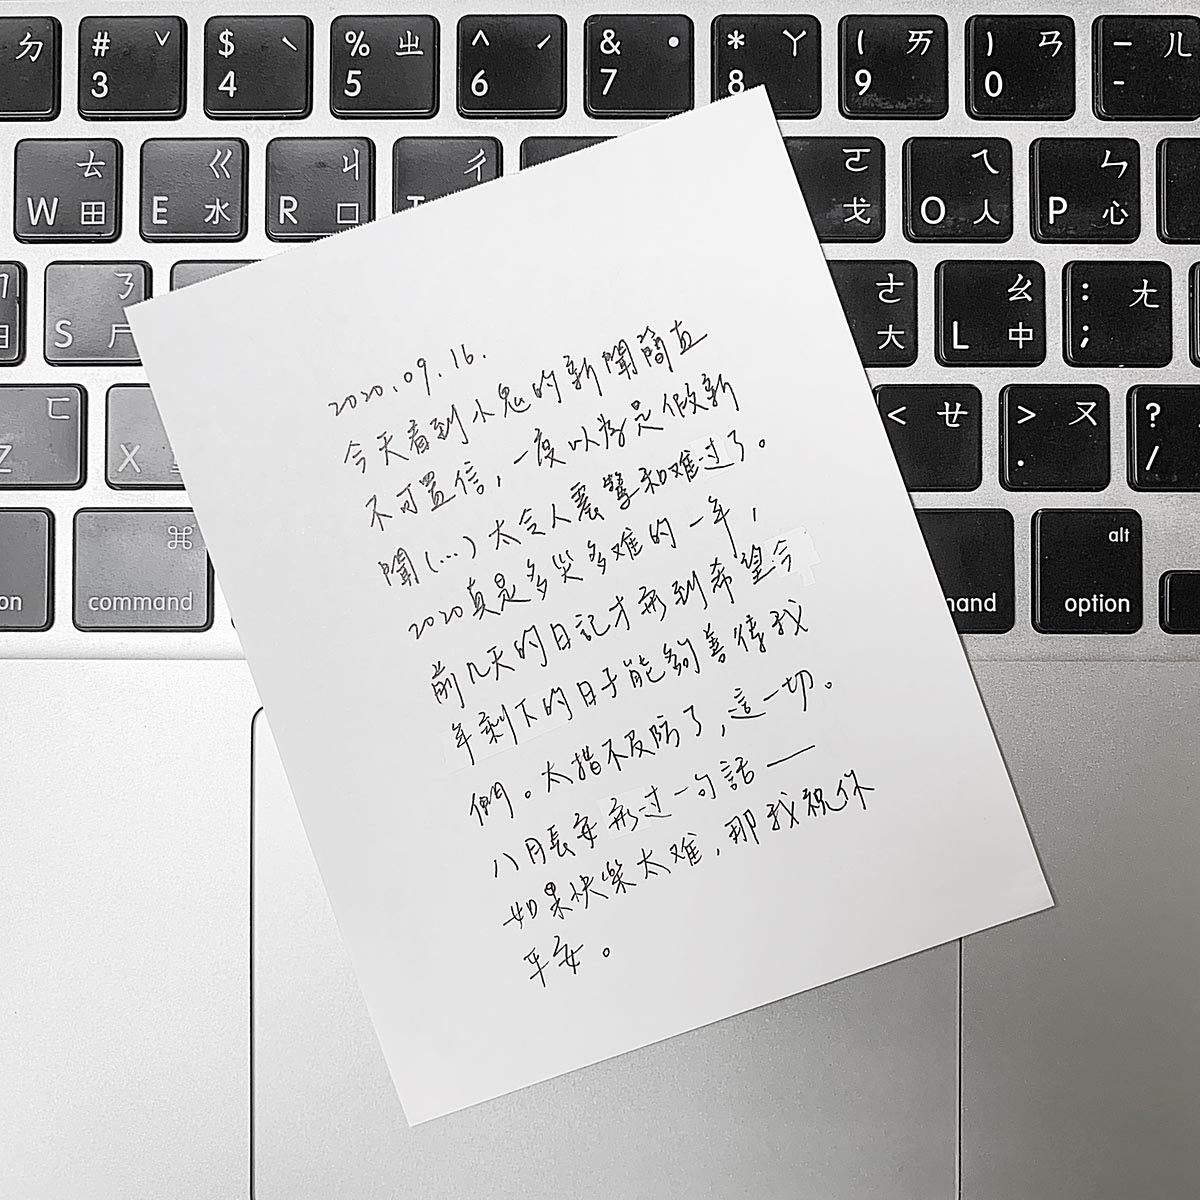 ㄉ # ˇ 3 $ ˋ 4 % ㄓ 5 ^ ˊ 6 & ˙ 7 * ㄚ 8 ( ㄞ 9 ) ㄢ 0 — ㄦ -
ㄊ W 田 ㄍ E 水 ㄐ R 口 ㄔ ㄛ 戈 ㄟ O 人 ㄣ P 心
ㄋ S 尸 ㄜ 大 ㄠ L 中 : ㄤ ;
ㄈ Z X < ㄝ > ㄡ . ? /
⌘ command alt option
2020.09.16.
今天看到小鬼的新聞簡直
不可置信，一度以為是假新
聞(...)太令人震驚和难过了。
2020真是多災多难的一年，
前几天的日記才寫到希望今
年剩下的日子能夠善待我
們。太措不及防了，這一切。
八月長安寫过一句話——
如果快樂太难，那我祝你
平安。